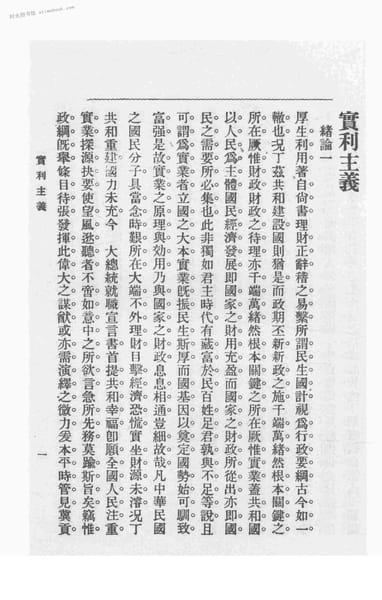 實利主義
緒論一
厚生利用著自尙書理財正辭稽之易繫所謂民生國計視爲行政要綱古今如一。
轍也況丁茲共和建設國則猶是而政期丕新新政之施千端萬緒然根本關鍵之。
所在厥惟財政財政之待理亦千端萬緒然根本關鍵之所在厥惟實業蓋共和國。
以人民爲主體國民經濟發展卽國家之財用充盈而國家之財政所從出亦卽國。
民之需要所必集也此非獨如君主時代有藏富於民百姓足君孰與不足等說且
可謂爲實業者立國之大本實業旣振民生斯厚而國基因以奠定國勢始可馴致。
富强是故實業之原理與効用乃與國家之財政息息相通豈細故哉凡中華民國
之國民分子具當念時艱所在大端不外理財目擊經濟恐慌實坐財源未濬况丁
共和重建國力未充今 大總統就職宣言書首提共和幸福卽願全國人民注重。
實業探源抉要使望風逖聽者不啻如意中之所欲言急所先務莫踰斯旨矣竊惟。
政綱旣舉條目待張發揮此偉大之謀猷或亦需演繹之微力爰本平時管見冀貢。
實利主義
一